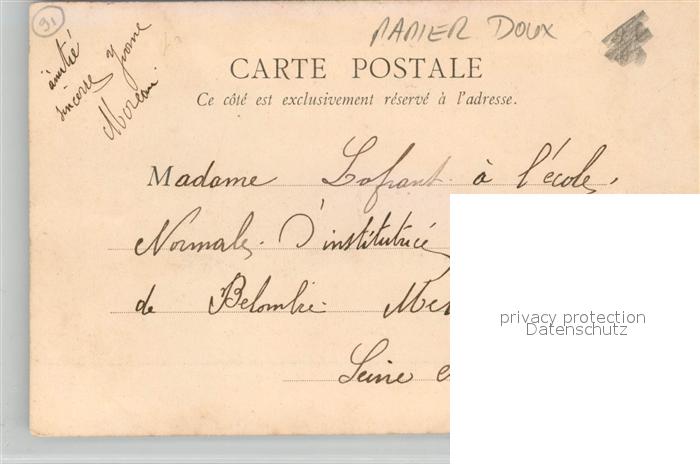 91
amitié
sincère Yvonne
Moreau
PAPIER DOUX
CARTE POSTALE
Ce côté est exclusivement réservé à l'adresse.
Madame à l'école
Normale. D'institutrice
de Belombre
Seine
privacy protection
Datenschutz